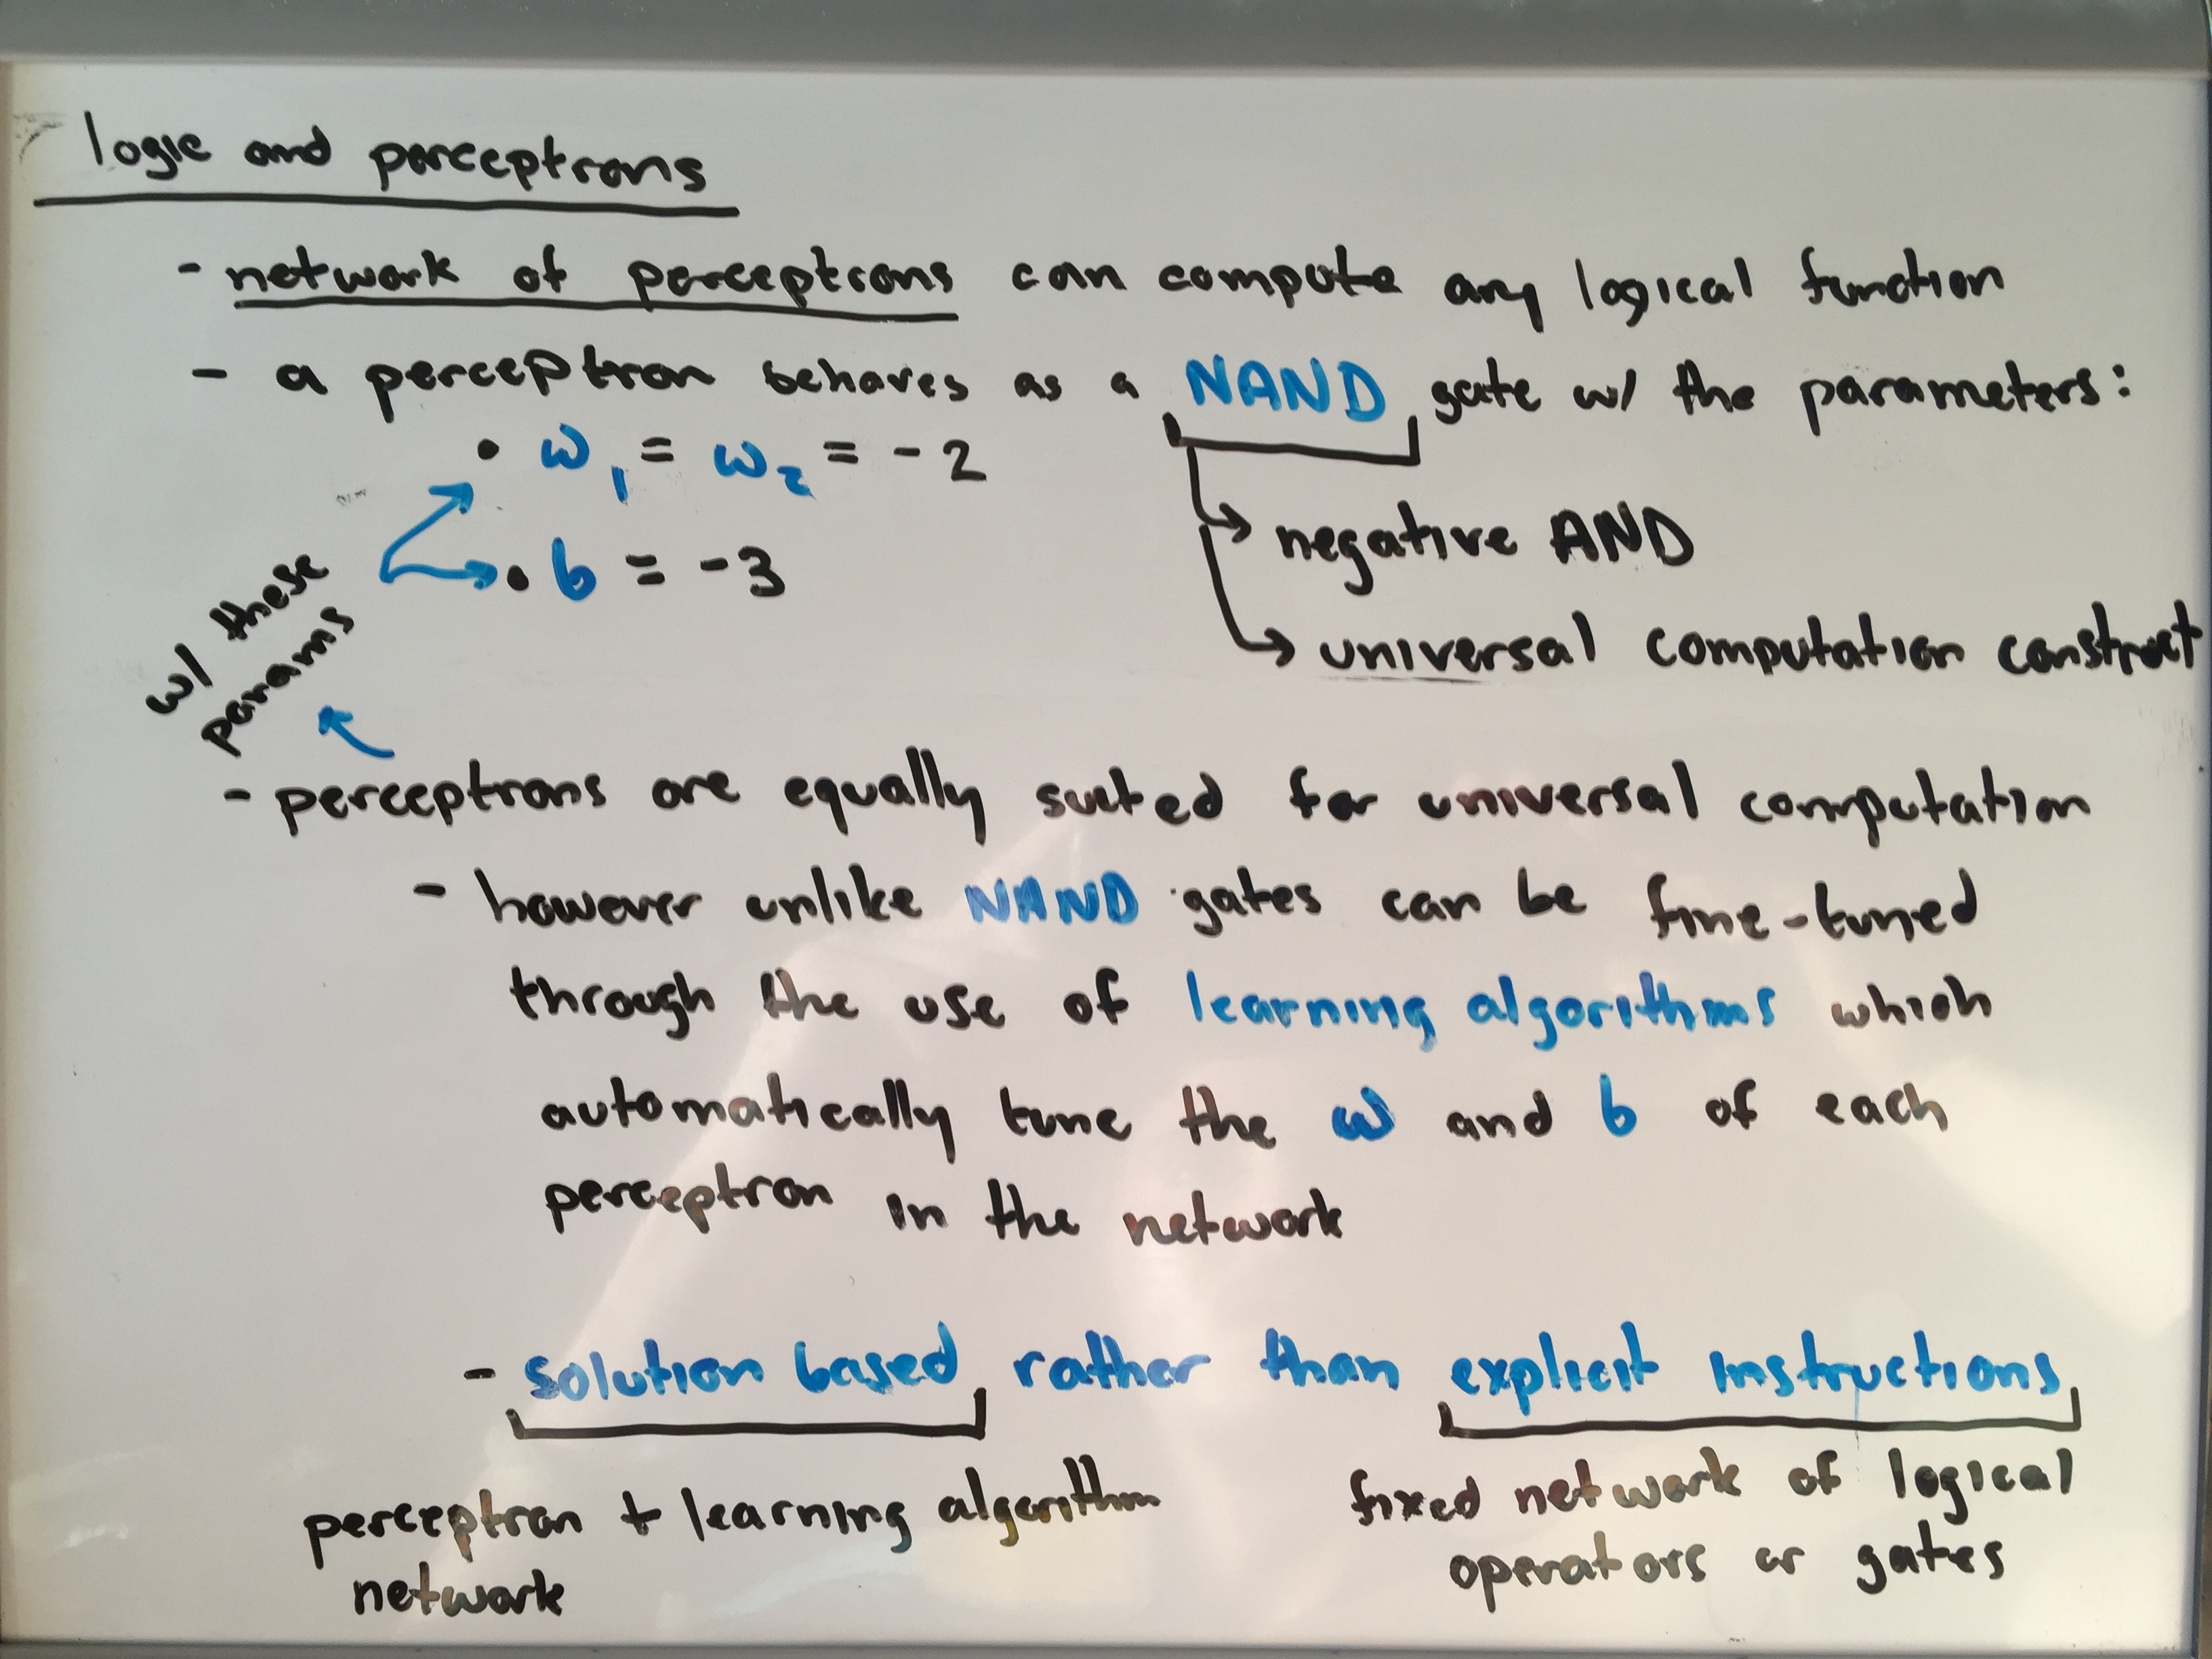 logic and perceptrons
- network of perceptrons can compute any logical function
- a perceptron behaves as a NAND gate w/ the parameters:
• w₁ = w₂ = -2
• b = -3
→ negative AND
→ universal computation construct
w/ these
params
- perceptrons are equally suited for universal computation
- however unlike NAND gates can be fine-tuned
through the use of learning algorithms which
automatically tune the w and b of each
perceptron in the network
- solution based rather than explicit instructions
perceptron + learning algorithm
network
fixed network of logical
operators or gates